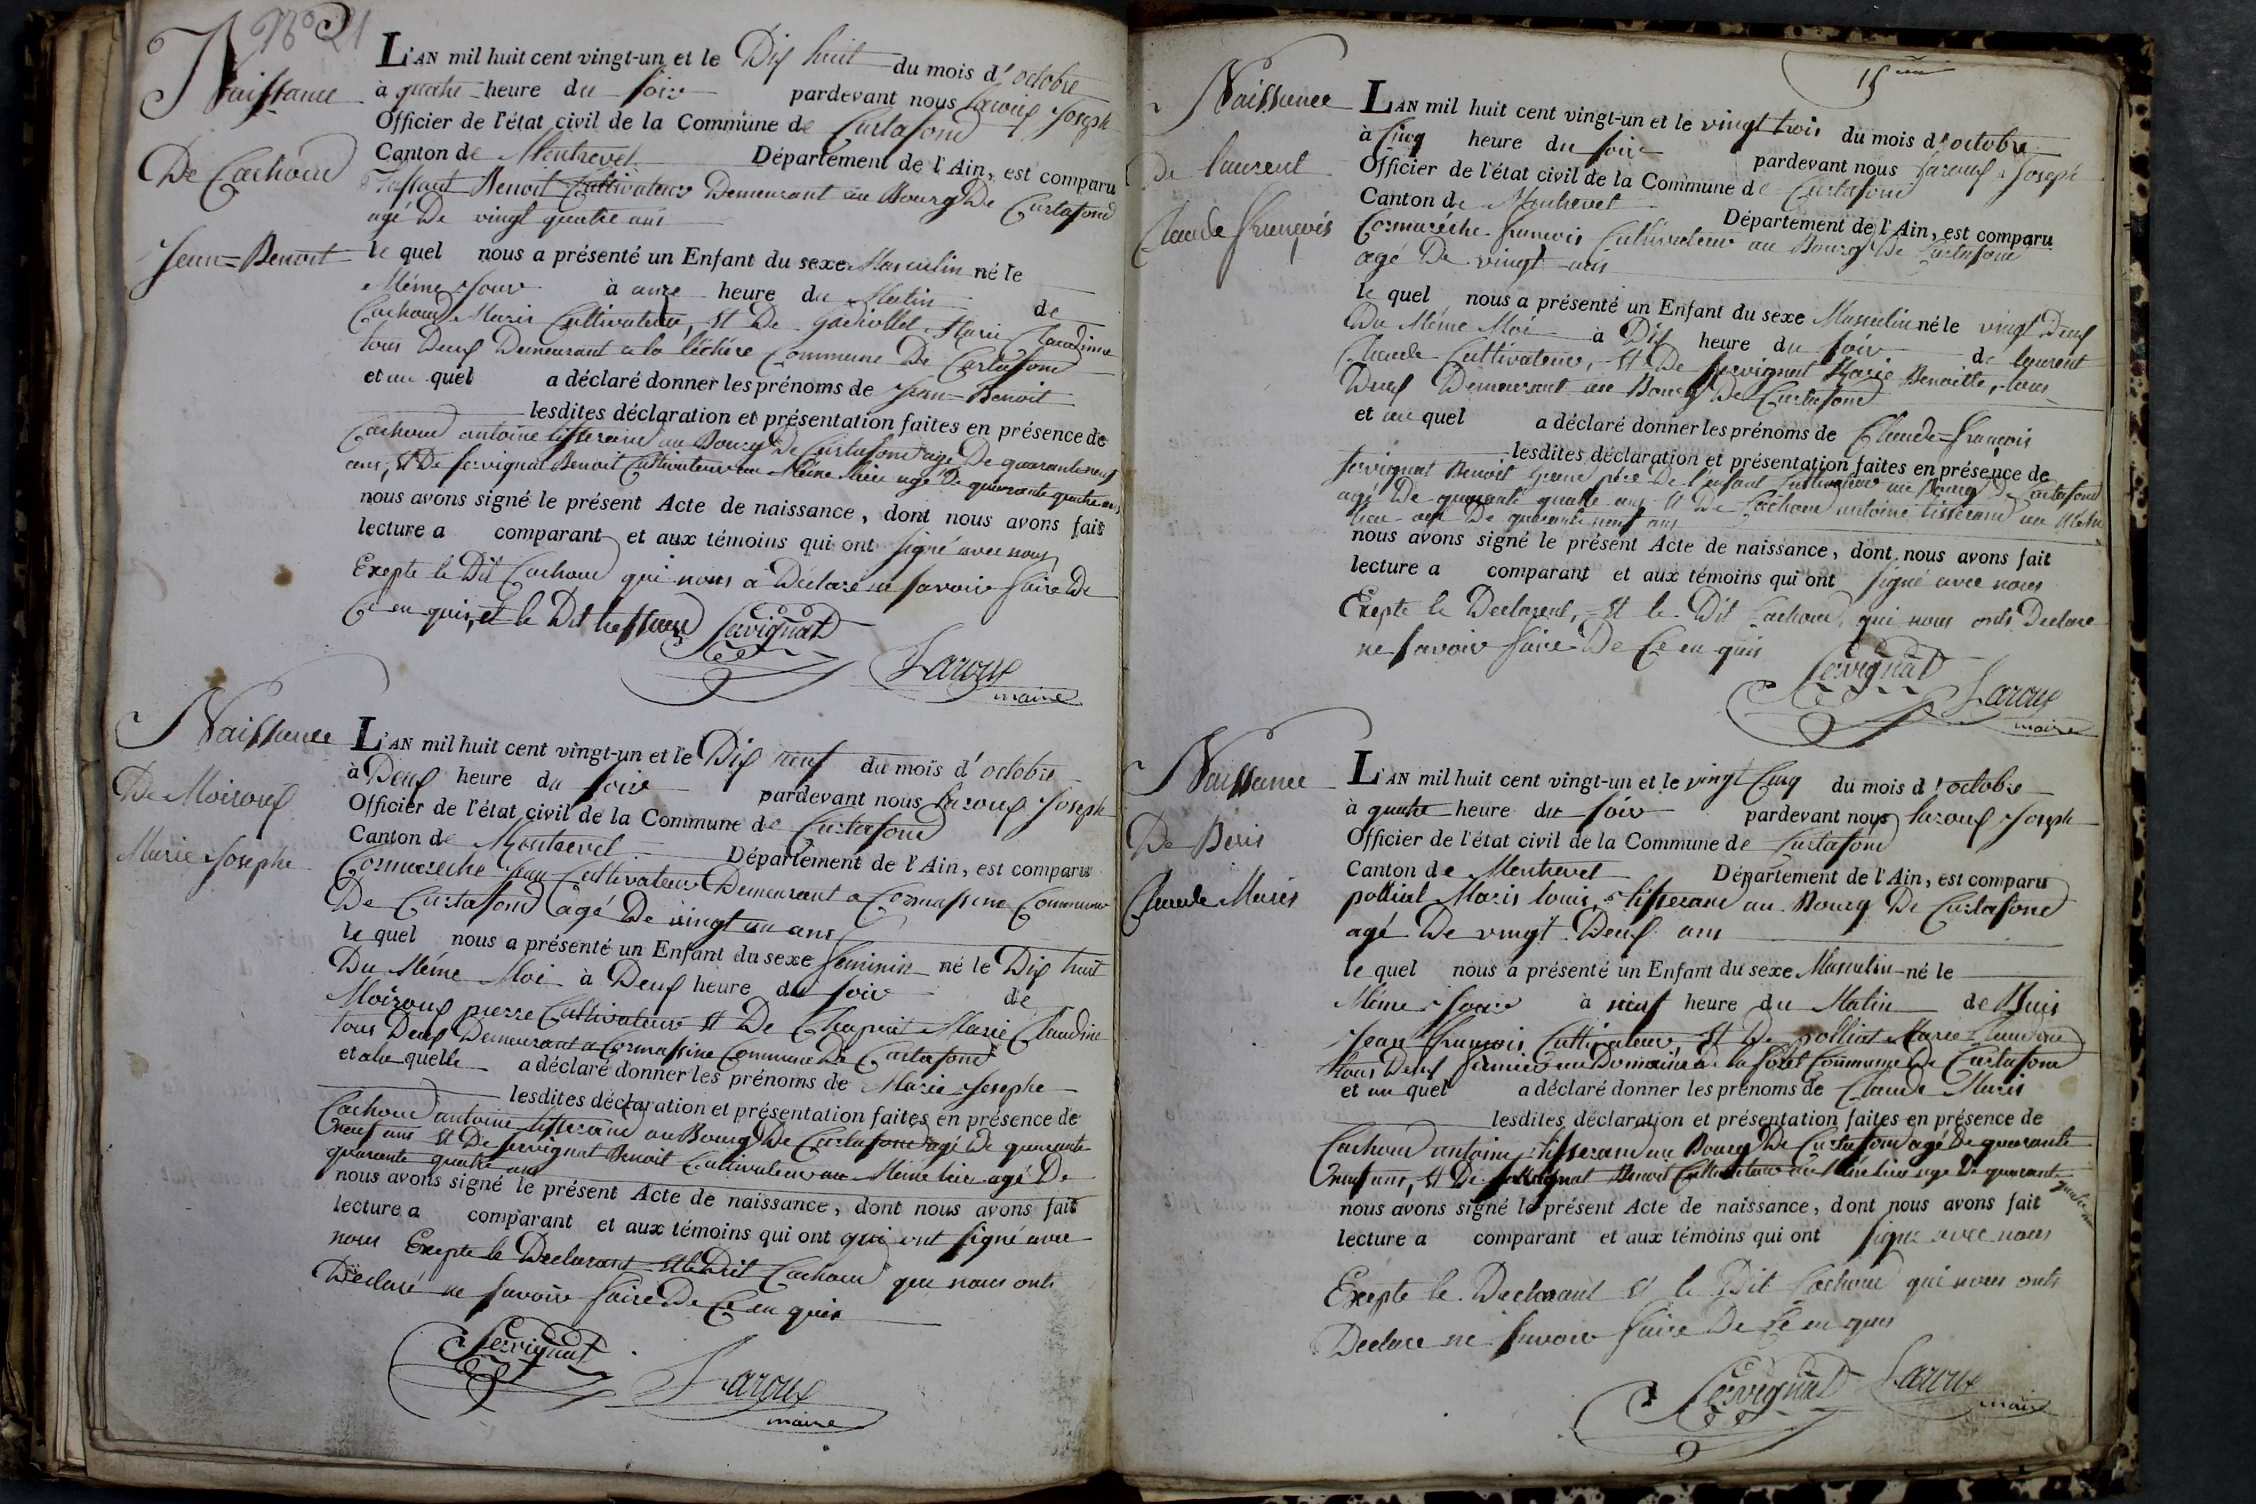 N° 21
Naissance
De Cachoud
Jean=Benoit
L'AN mil huit cent vingt-un et le Dix huit du mois d'octobre
à quatre heure du soir pardevant nous Laroux Joseph
Officier de l'état civil de la Commune de Curtafond
Canton de Montrevel Département de l'Ain, est comparu
Benoit Cultivateur Demeurant au Bourg De Curtafond
agé De vingt quatre ans
le quel nous a présenté un Enfant du sexe Masculin né le
Méme Jour à onze heure du Matin de
Cachoud Marie Cultivateur, et De Marie Claudine
tous Deux Demeurant a la léchére Commune De Curtafond
et au quel a déclaré donner les prénoms de Jean=Benoit
lesdites déclaration et présentation faites en présence de
Cachoud antoine tisserand au Bourg De Curtafond agé De quarante neuf
ans, et De Servignat Benoit Cultivateur au Méme lieu agé De quarante quatre ans
nous avons signé le présent Acte de naissance, dont nous avons fait
lecture a comparant et aux témoins qui ont signé avec nous
Exepte le Dit Cachoud qui nous a Déclaré ne savoir faire De
Ce en quis, et le Dit Servignat
Laroux
maire
Naissance
De Moiroux
Marie Josephe
L'AN mil huit cent vingt-un et le Dix neuf du mois d'octobre
à Deux heure du soir pardevant nous Laroux Joseph
Officier de l'état civil de la Commune de Curtafond
Canton de Montrevel Département de l'Ain, est comparu
Cormareche Jean Cultivateur Demeurant a Cormassine Commune
De Curtafond agé De vingt un ans
le quel nous a présenté un Enfant du sexe feminin né le Dix huit
Du Méme Moi à Deux heure du soir de
Moiroux pierre Cultivateur et De Chapuit Marie Claudine
tous Deux Demeurant a Cormassine Commune De Curtafond
et a la quelle a déclaré donner les prénoms de Marie Josephe
lesdites déclaration et présentation faites en présence de
Cachoud antoine tisserand au Bourg De Curtafond agé De quarante
neuf ans et De Servignat Benoit Cultivateur au Méme lieu agé De
quarante quatre ans
nous avons signé le présent Acte de naissance, dont nous avons fait
lecture a comparant et aux témoins qui ont qui ont signé avec
nous Exepte le Declarant et le Dit Cachoud que nous onts
Declaré ne savoir faire De Ce en quis
Servignat
Laroux
maire
15
Naissance
De laurent
Claude François
L'AN mil huit cent vingt-un et le vingt trois du mois d'octobre
à Cinq heure du soir pardevant nous Laroux Joseph
Officier de l'état civil de la Commune de Curtafond
Canton de Montrevel Département de l'Ain, est comparu
Cormaréche francois Cultivateur au Bourg De Curtafond
agé De vingt ans
le quel nous a présenté un Enfant du sexe Masculin né le vingt Deux
Du Méme Moi à Dix heure du soir de laurent
Claude Cultivateur, et De Servignat Marie Benoitte, tous
Deux Demeurant au Bourg De Curtafond
et au quel a déclaré donner les prénoms de Claude=François
lesdites déclaration et présentation faites en présence de
Servignat Benoit Grand pére De l'enfant Cultivateur au Bourg De Curtafond
agé De quarante quatre ans et De Cachoud antoine tisserand au Méme
lieu agé De quarante neuf ans
nous avons signé le présent Acte de naissance, dont nous avons fait
lecture a comparant et aux témoins qui ont signé avec nous
Exepte le Declarent, et le Dit Cachoud, qui nous onts Declare
ne savoir faire De Ce en quis
Servignat
Laroux
maire
Naissance
De Buis
Claude Marie
L'AN mil huit cent vingt-un et le vingt Cinq du mois d'octobre
à quatre heure du soir pardevant nous Laroux Joseph
Officier de l'état civil de la Commune de Curtafond
Canton de Montrevel Département de l'Ain, est comparu
polliat Marie louis, tisserand au Bourg De Curtafond
agé De vingt Deux ans
le quel nous a présenté un Enfant du sexe Masculin né le
Méme Jour à neuf heure du Matin de Buis
Jean François Cultivateur, et De polliat Marie Claudine
tous Deux fermier au Domaine De la forêt Commune De Curtafond
et au quel a déclaré donner les prénoms de Claude Marie
lesdites déclaration et présentation faites en présence de
Cachoud antoine tisserand au Bourg De Curtafond agé De quarante
neuf ans, et De Servignat Benoit Cultivateur au Méme lieu agé De quarante quatre ans
nous avons signé le présent Acte de naissance, dont nous avons fait
lecture a comparant et aux témoins qui ont signé avec nous
Exepte le Declarant et le Dit Cachoud qui nous onts
Declare ne savoir faire De Ce en quis
Servignat
Laroux
maire